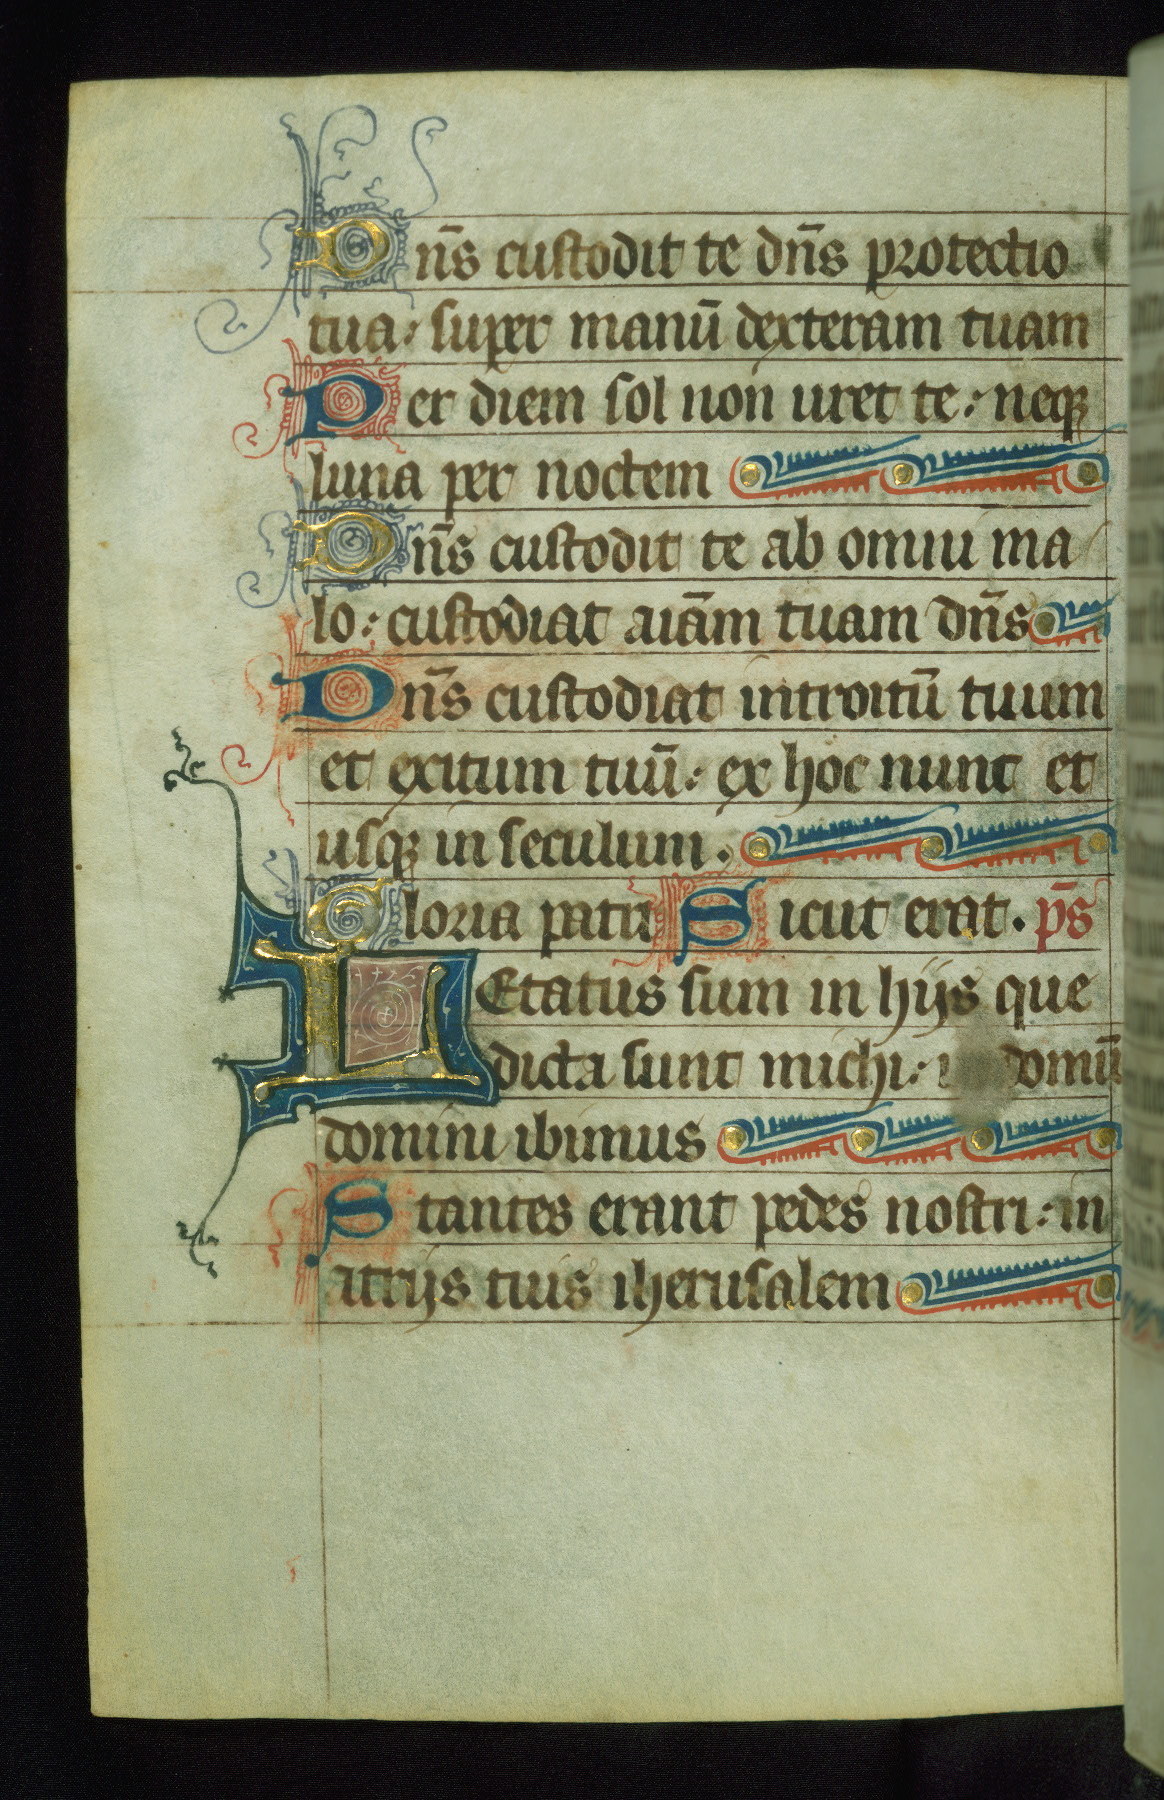 Dn̄s custodit te dn̄s protectio
tua: super manū dexteram tuam
Per diem sol non uret te: neqꝫ
luna per noctem
Dn̄s custodit te ab omni ma
lo: custodiat aīam tuam dn̄s
Dn̄s custodiat introitū tuum
et exitum tuū: ex hoc nunc et
usqꝫ in seculum.
Gloria patri Sicut erat. p̄s
LEtatus sum in hijs que
dicta sunt michi: domū
domini ibimus
Stantes erant pedes nostri: in
atrijs tuis iherusalem